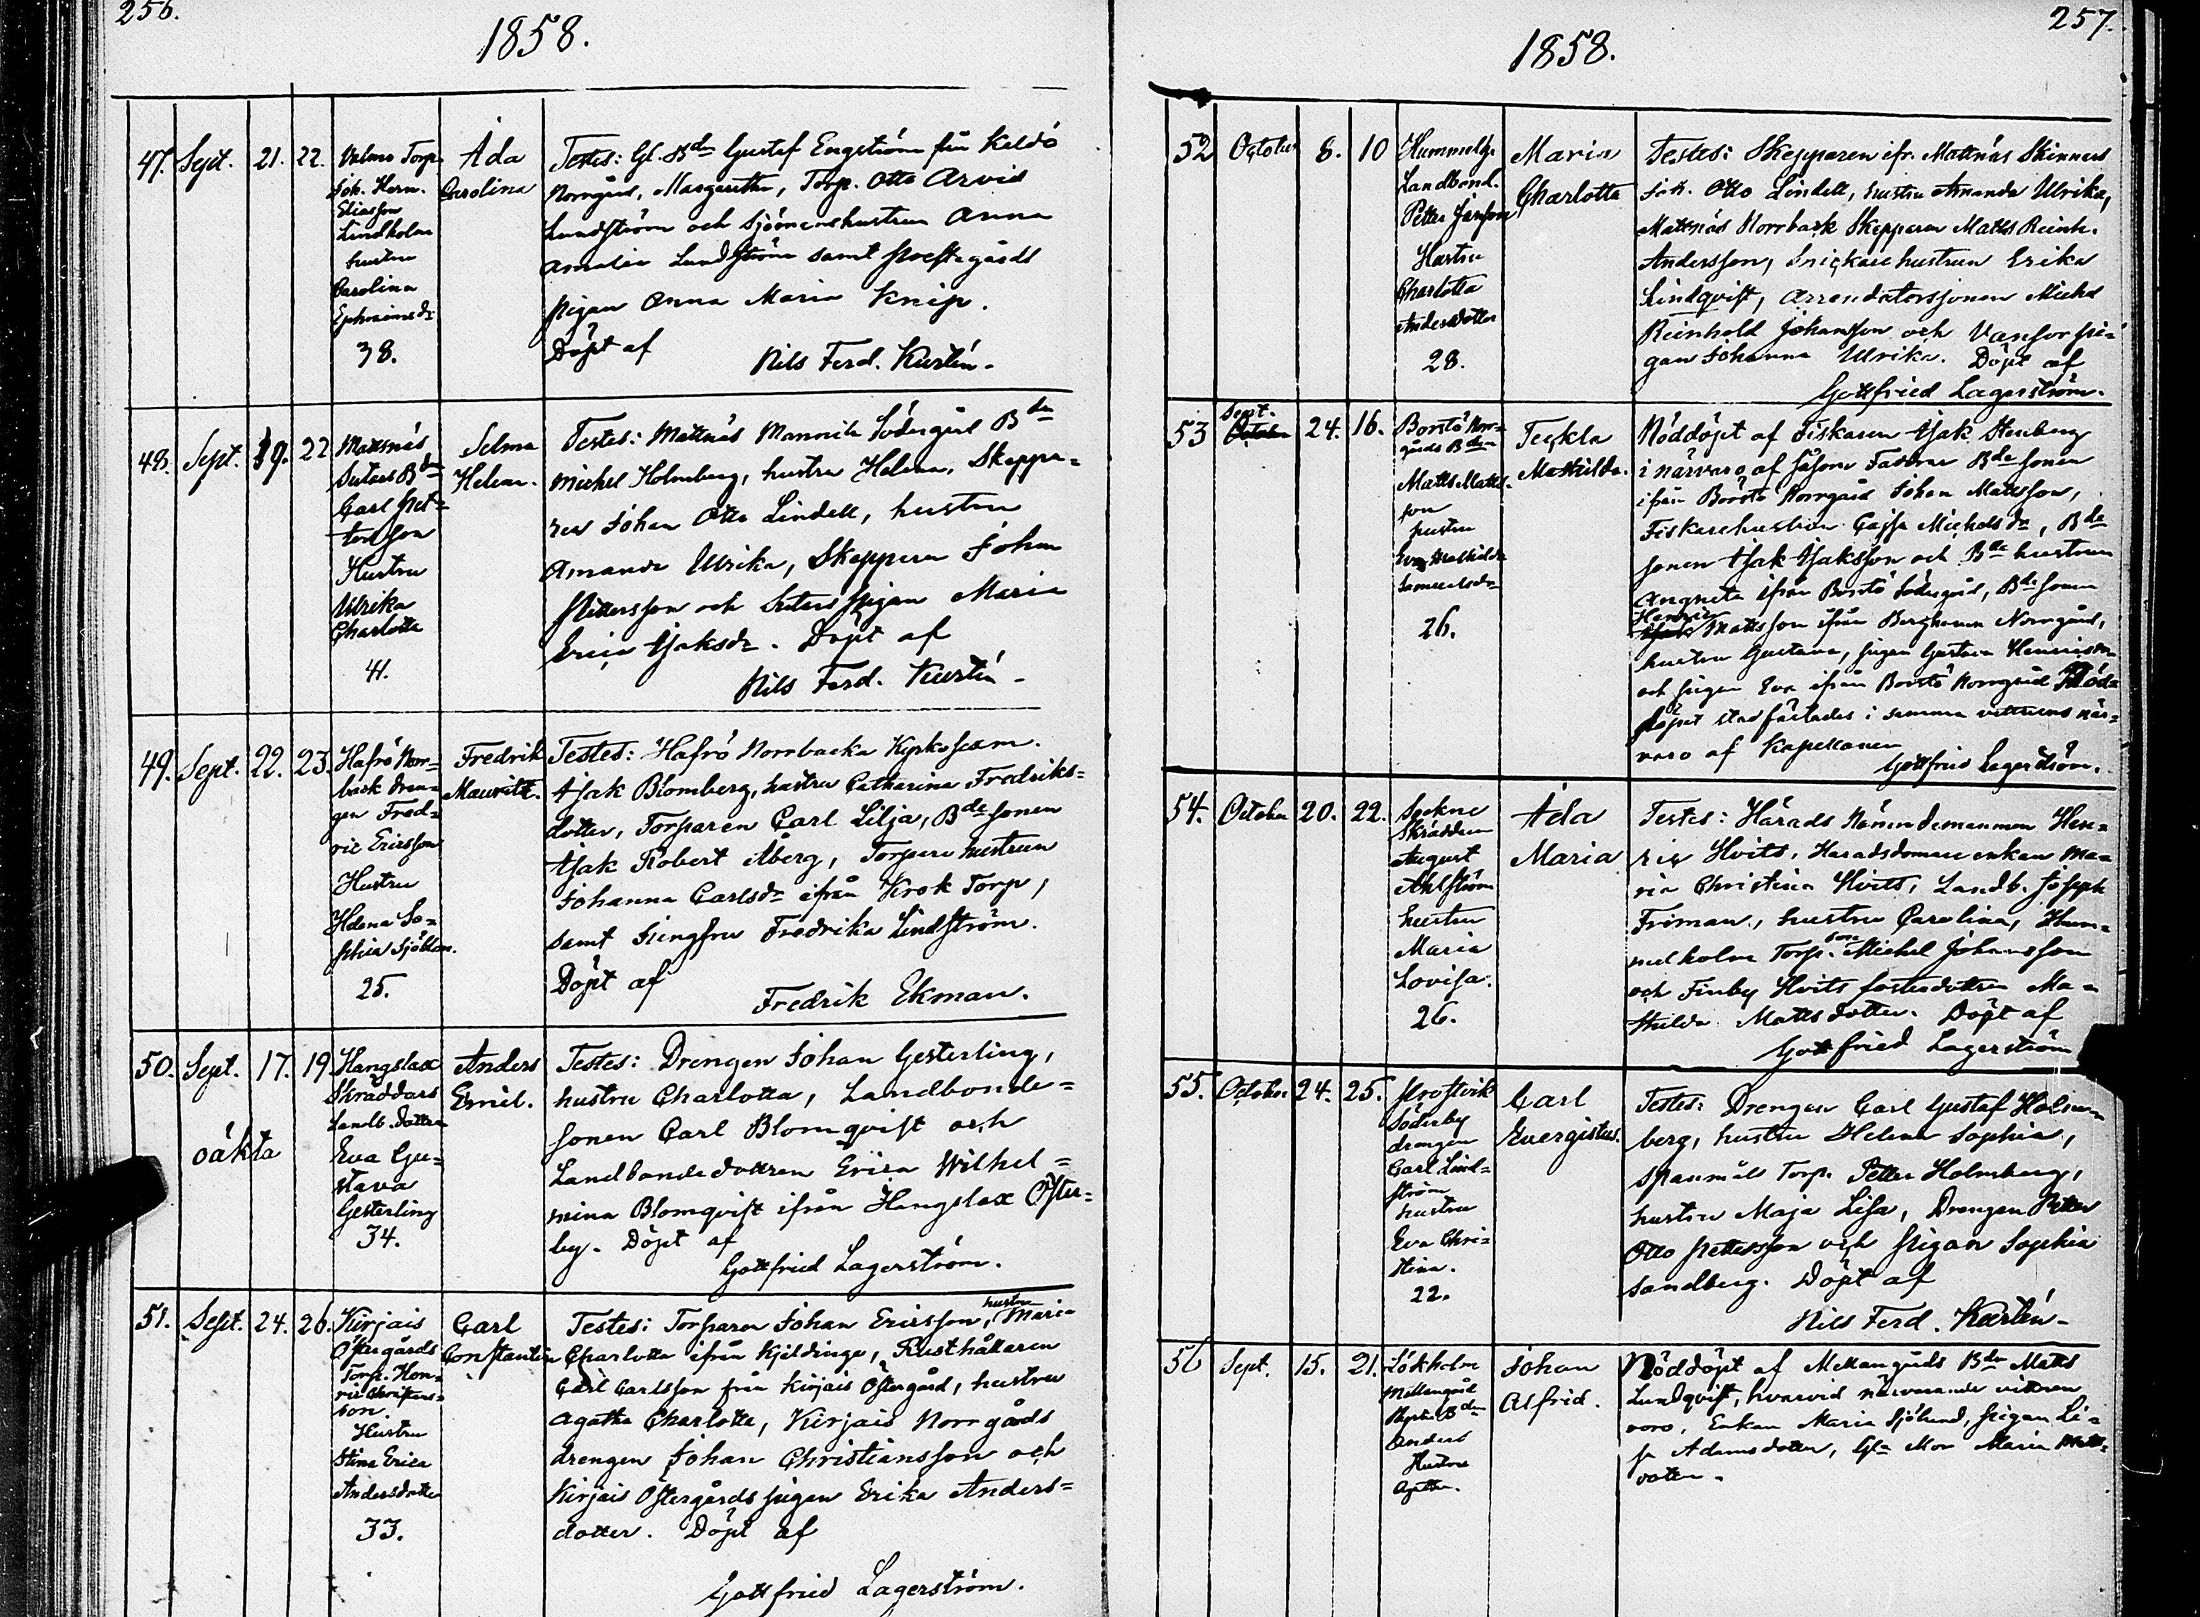 256.
1858.
47. Sept. 21. 22.
Valmo Torp.
Joh. Herm.
Eliasson
Lindholm
hustru
Carolina
Ephraimsdr
38.
Ada
Carolina
Testes: Gl. Bdn Gustaf Engström från Keldö
Norrgård, Margaretha, Torp. Otto Arvid
Lundström och Sjömanshustrun Anna
Amalia Lundström samt Prestegårds
pigan Anna Maria Knip.
Döpt af
Nils Ferd. Kurtén.
48. Sept. 19. 22
Mattnäs
Sutars Bdn
Carl Pet-
tersson
Hustru
Ulrika
Charlotta
41.
Selma
Helena.
Testes: Mattnäs Mannila Södergård Bdn
Michel Holmberg, hustru Helena, Skeppa-
ren Johan Otto Lindell, hustru
Amanda Ulrika, Skepparen Johan
Pettersson och Sutars pigan Maria
Erica Isaksdr. Döpt af
Nils Ferd. Kurtén
49. Sept. 22. 23.
Hafrö Nor-
back dren-
gen Fred-
ric Ericsson
Hustru
Helena So-
phia Sjöblom.
25.
Fredrik
Mauritz.
Testes: Hafrö Norrbacka Kyrkoherm.
Isak Blomberg, hustru Catharina Fredriks-
dotter, Torparen Carl Lilja, Bde sonen
Isak Robert Åberg, Torpare hustrun
Johanna Carlsdr ifrån Krok Torp,
samt Jungfru Fredrika Lindström.
Döpt af
Fredrik Ekman.
50. Sept. 17. 19.
oäkta
Hangslax
Skräddars
Landb. dottren
Eva Gu-
stava
Gesterling
34.
Anders
Emil.
Testes: Drengen Johan Gesterling,
hustru Charlotta, Landbonde-
sonen Carl Blomqvist och
Landbondedottren Erica Wilhel-
mina Blomqvist ifrån Hangslax Öster-
by. Döpt af
Gottfried Lagerström.
51. Sept. 24. 26.
Kirjais
Östergårds
Torp. Hen-
ric Christians-
son
Hustru
Stina Erica
Andersdotter
33.
Carl
Constantin
Testes: Torparen Johan Ericsson, hustru Maria
Charlotta ifrån Kjeldinge, Rusthållaren
Carl Carlsson från Kirjais Östergård, hustru
Agatha Charlotta, Kirjais Norrgårds
drengen Johan Christiansson och
Kirjais Östergårds pigan Erika Anders-
dotter. Döpt af
Gottfried Lagerström.
257.
1858.
52 October 8. 10
Landbond.
Petter Jansson
Hustru
Charlotta
Andersdotter
28.
Maria
Charlotta
Testes: Skepparen ifr. Mattnäs Skinnars
Joh. Otto Lindell, hustru Amanda Ulrika,
Mattnäs Norrback Skepparen Matts Reinh.
Andersson, Snickarehustrun Erika
Lindqvist, Arrendatorssonen Michel
Reinhold Johansson och Vansor pi-
gan Johanna Ulrika. Döpt af
Gottfried Lagerström.
53 Sept. October 24. 16.
Borstö Norr-
gårds Bden
Matts Matts-
son
hustru
Eva Mathilda
Samuelsdr
26.
Teckla
Mathilda.
Nöddöpt af Fiskaren Isak Stenberg
i närvaro af såsom Faddrar Bde sonen
ifrån Borstö Norrgård Johan Mattsson,
Fiskarehustrun Cajsa Michelsdr, Bde
sonen Isak Isaksson och Bde hustrun
Angneta ifrån Borstö Södergård, Bde sonen
Henric Mattsson ifrån Berghamn Norrgård,
hustru Gustava, pigan Gustava Henricsdr
och pigan Eva ifrån Borstö Norrgård Nöd-
döpet stadfästades i samma vittnens när-
varo af Kapellanen
Gottfried Lagerström.
54. October 20. 22.
Skräddaren
August
Ahlström
hustru
Maria
Lovisa.
26.
Ada
Maria
Testes: Härads Nämndemannen Hen-
ric Hvits, Haradsdomare enkan Ma-
ria Christina Hvits, Landb. Joseph
Friman, hustru Carolina, Hum-
melholm Torp. son Michel Johansson
och Finby Hvits fosterdottren Ma-
thilda Mattsdotter. Döpt af
Gottfried Lagerström
55. October 24. 25.
Prostvik
Söderby
drengen
Carl Lind-
ström
hustru
Eva Chri-
stina.
22.
Carl
Evergistus.
Testes: Drengen Carl Gustaf Holm-
berg, hustru Helena Sophia,
Spanmäls Torp. Petter Holmberg,
hustru Maja Lisa, Drengen Petter
Otto Pettersson och Pigan Sophia
Sandberg. Döpt af
Nils Ferd. Kurtén
56 Sept. 15. 21.
Lökholm
Mellangård
Bdn
Anders
Hustru
Agatha.
Johan
Alfrid.
Nöddöpt af Mellangårds Bdn Matts
Lundqvist, hvarvid närvarande vittnen
voro, Enkan Maria Sjölund, pigan Li-
sa Adamsdotter, Gl. Mor Maria Matts-
dotter.